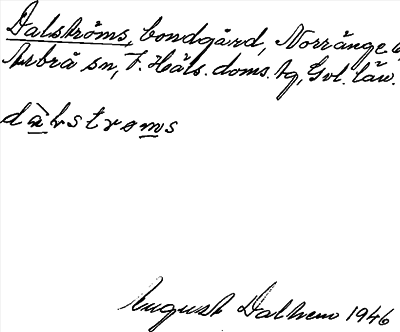 Dalströms, bondgård, Norränge by
Arbrå sn, V. Häls. doms. tg, Gvl. län.
dàlstroms
August Dalhem 1946